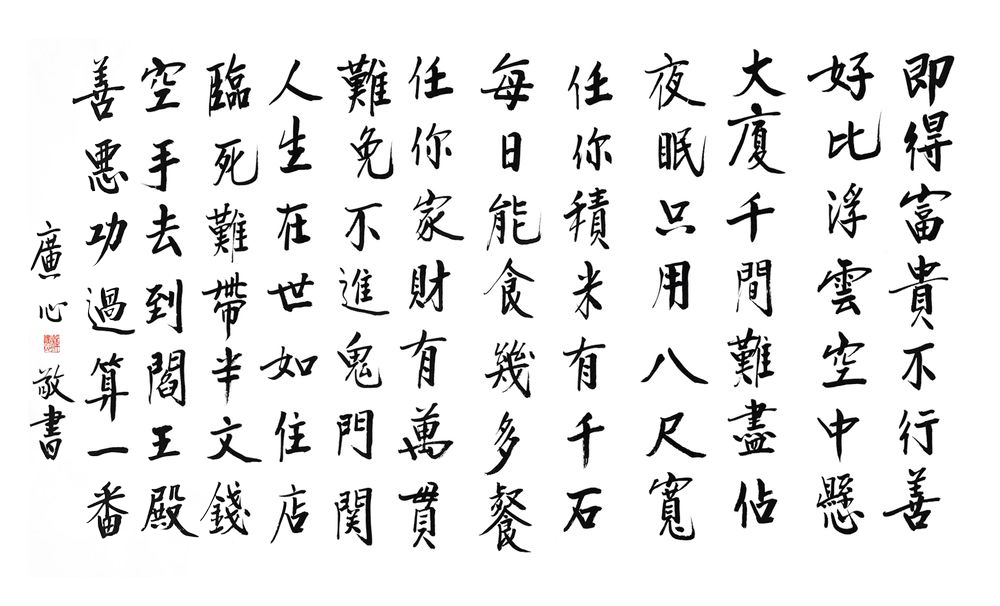 即得富貴不行善
好比浮雲空中懸
大廈千間難盡佔
夜眠只用八尺寬
任你積米有千石
每日能食幾多餐
任你家財有萬貫
難免不進鬼門関
人生在世如住店
臨死難帶半文錢
空手去到閻王殿
善惡功過算一番
廣心敬書